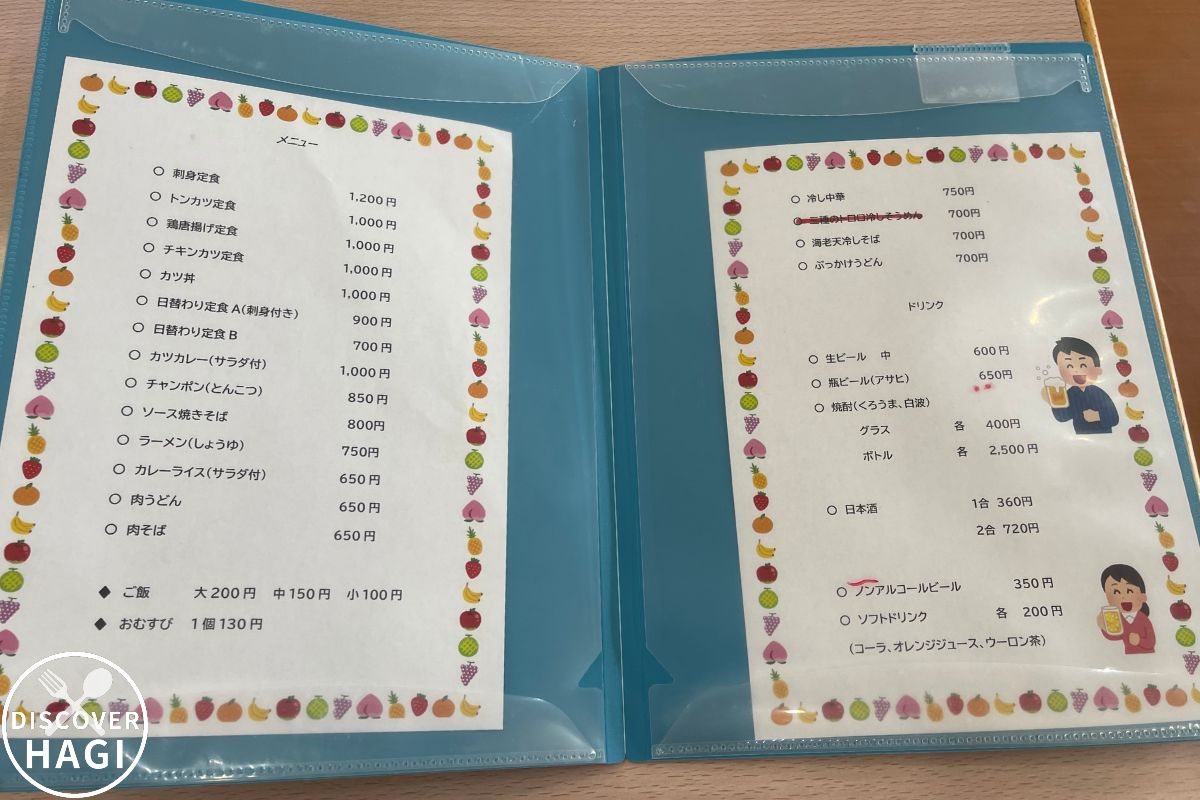 メニュー
○ 刺身定食 1,200円
○ トンカツ定食 1,000円
○ 鶏唐揚げ定食 1,000円
○ チキンカツ定食 1,000円
○ カツ丼 1,000円
○ 日替わり定食A(刺身付き) 900円
○ 日替わり定食B 700円
○ カツカレー(サラダ付) 1,000円
○ チャンポン(とんこつ) 850円
○ ソース焼きそば 800円
○ ラーメン(しょうゆ) 750円
○ カレーライス(サラダ付) 650円
○ 肉うどん 650円
○ 肉そば 650円
◆ ご飯 大200円 中150円 小100円
◆ おむすび 1個130円
○ 冷し中華 750円
○ 種のトロロ冷しそうめん 700円
○ 海老天冷しそば 700円
○ ぶっかけうどん 700円
ドリンク
○ 生ビール 中 600円
○ 瓶ビール(アサヒ) 650円
○ 焼酎(くろうま、白波)
グラス 各 400円
ボトル 各 2,500円
○ 日本酒 1合 360円
2合 720円
○ ノンアルコールビール 350円
○ ソフトドリンク 各 200円
(コーラ、オレンジジュース、ウーロン茶)
DISCOVER
HAGI